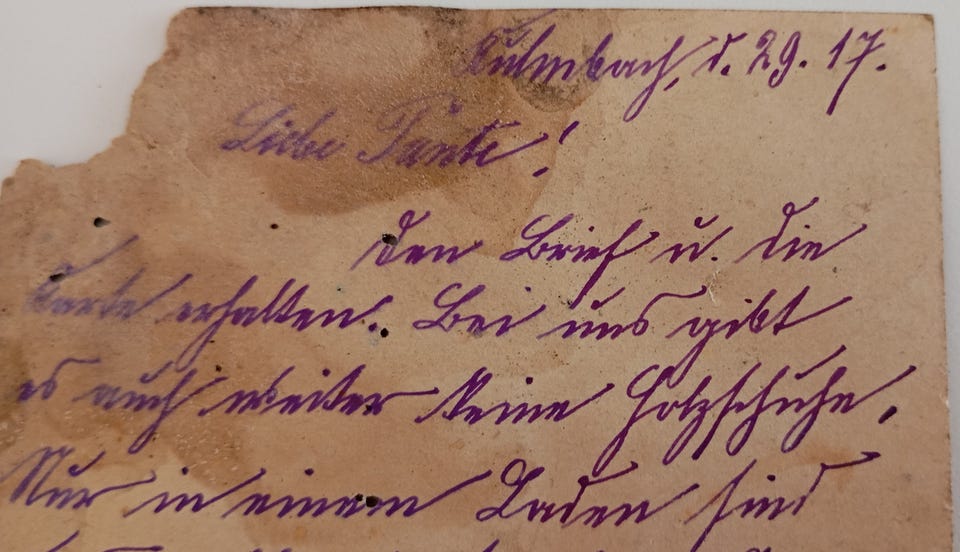 Kulmbach, d. 29. 17.
Liebe Tante!
den Brief u. die
Karte erhalten. Bei uns gibt
es auch weiter keine Holzschuhe,
Nur in einem Laden sind